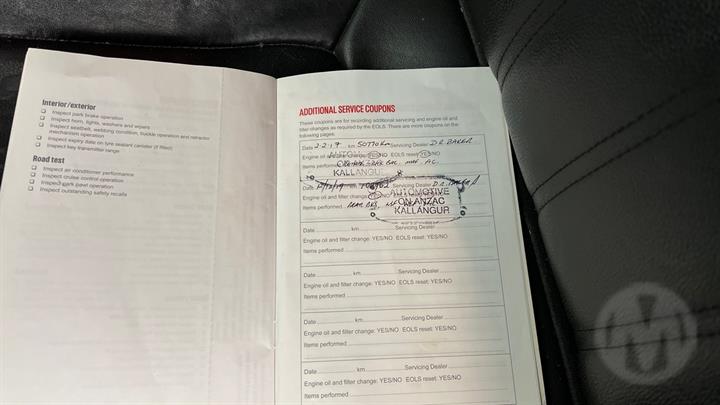 Interior/exterior
Inspect park brake operation
Inspect horn, lights, washers and wipers
Inspect seatbelt, webbing condition, buckle operation and retractor
mechanism operation
Inspect expiry date on tyre sealant canister (if fitted)
Inspect key transmitter range
Road test
Inspect air conditioner performance
Inspect cruise control operation
Inspect park pawl operation
Inspect outstanding safety recalls
ADDITIONAL SERVICE COUPONS
These coupons are for recording additional servicing and engine oil and
filter changes as required by the EOLS. There are more coupons on the
following pages.
Date 2.2.19 km 50770 km Servicing Dealer D R BAKER
Engine oil and filter change: YES/NO EOLS reset: YES/NO
Items performed
KALLANGUR
Date km Servicing Dealer
Engine oil
Items performed
AUTOMOTIVE
ON ANZAC
KALLANGUR
Date km Servicing Dealer
Engine oil and filter change: YES/NO EOLS reset: YES/NO
Items performed
Date km Servicing Dealer
Engine oil and filter change: YES/NO EOLS reset: YES/NO
Items performed
Date km Servicing Dealer
Engine oil and filter change: YES/NO EOLS reset: YES/NO
Items performed
Date km Servicing Dealer
Engine oil and filter change: YES/NO EOLS reset: YES/NO
Items performed